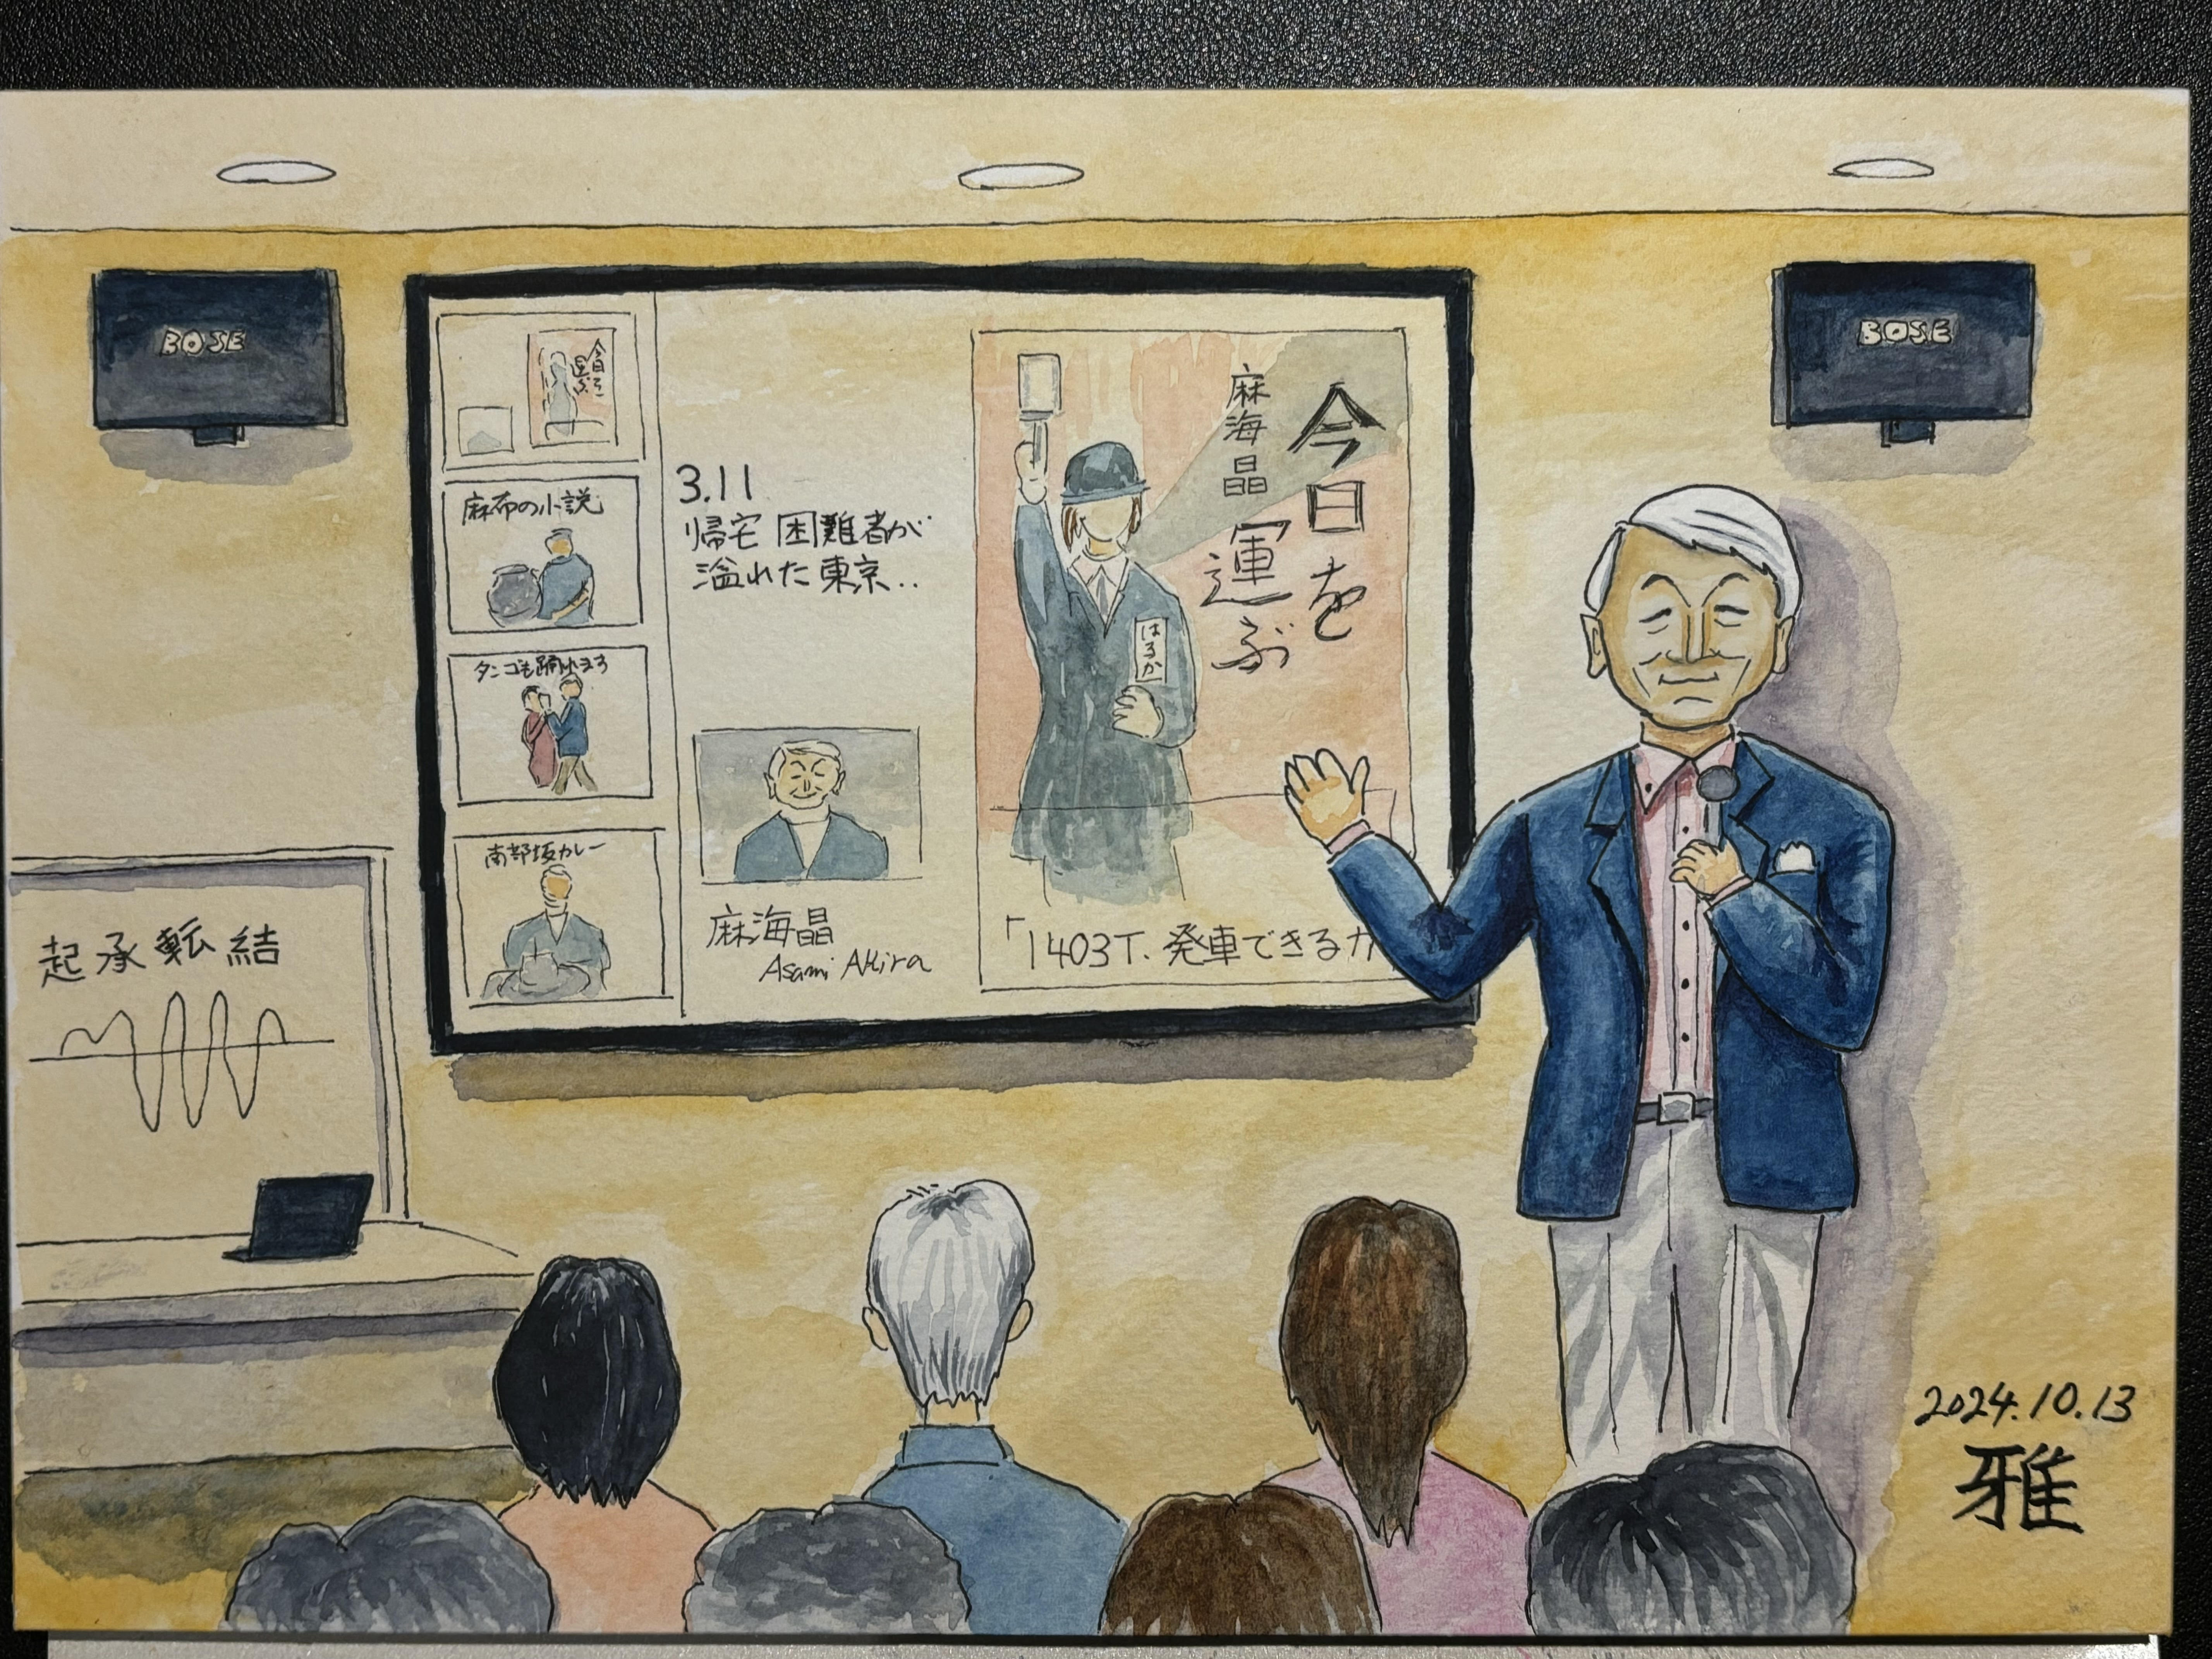 BOSE
BOSE
今日を
運ぶ
麻布の小説
タンゴも踊れます
南部坂カレー
3.11
帰宅困難者が
溢れた東京..
麻海晶
Asami Akira
今日を
運ぶ
麻海晶
はるか
「1403T、発車できるか
起承転結
2024.10.13
雅